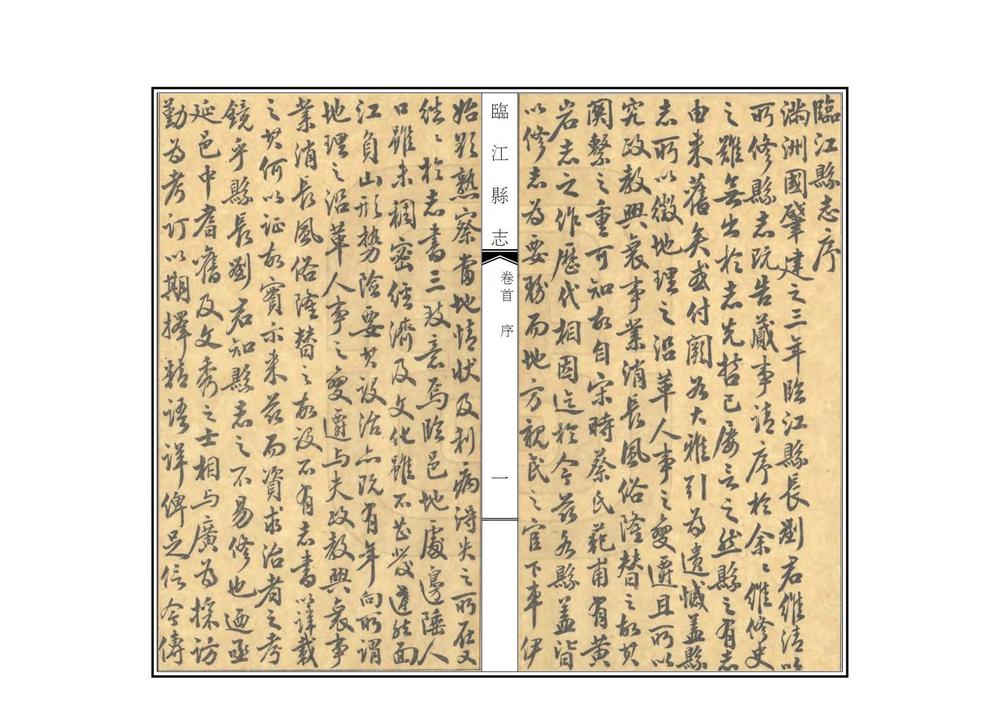 臨江縣志序
滿洲國肇建之三年臨江縣長劉君維清以
所修縣志既告蕆事請序於余余維修史
之難無出於志先哲已屢言之然縣之有志
由來舊矣或付闕如大雅引為遺憾蓋縣
志所以徵地理之沿革人事之變遷且所以
究政教興衰事業消長風俗隆替之故其
關繫之重可知故自宋時蔡氏範甫有黃
岩志之作歷代相因迄於今茲各縣蓋皆
以修志為要務而地方親民之官下車伊
臨江縣志
卷首 序
一
始欲熟察當地情狀及利病得失之所在又
往往於志書三致意焉臨邑地處邊陲人
口雖未稠密經濟及文化雖不甚發達然面
江負山形勢險要其設治亦既有年向所謂
地理之沿革人事之變遷與夫政教興衰事
業消長風俗隆替之故設不有志書以詳載
之其何以證故實示來茲而資求治者之考
鏡乎縣長劉君知縣志之不易修也迺亟
延邑中耆舊及文秀之士相與廣為採訪
勤為考訂以期擇精語詳俾足信今傳